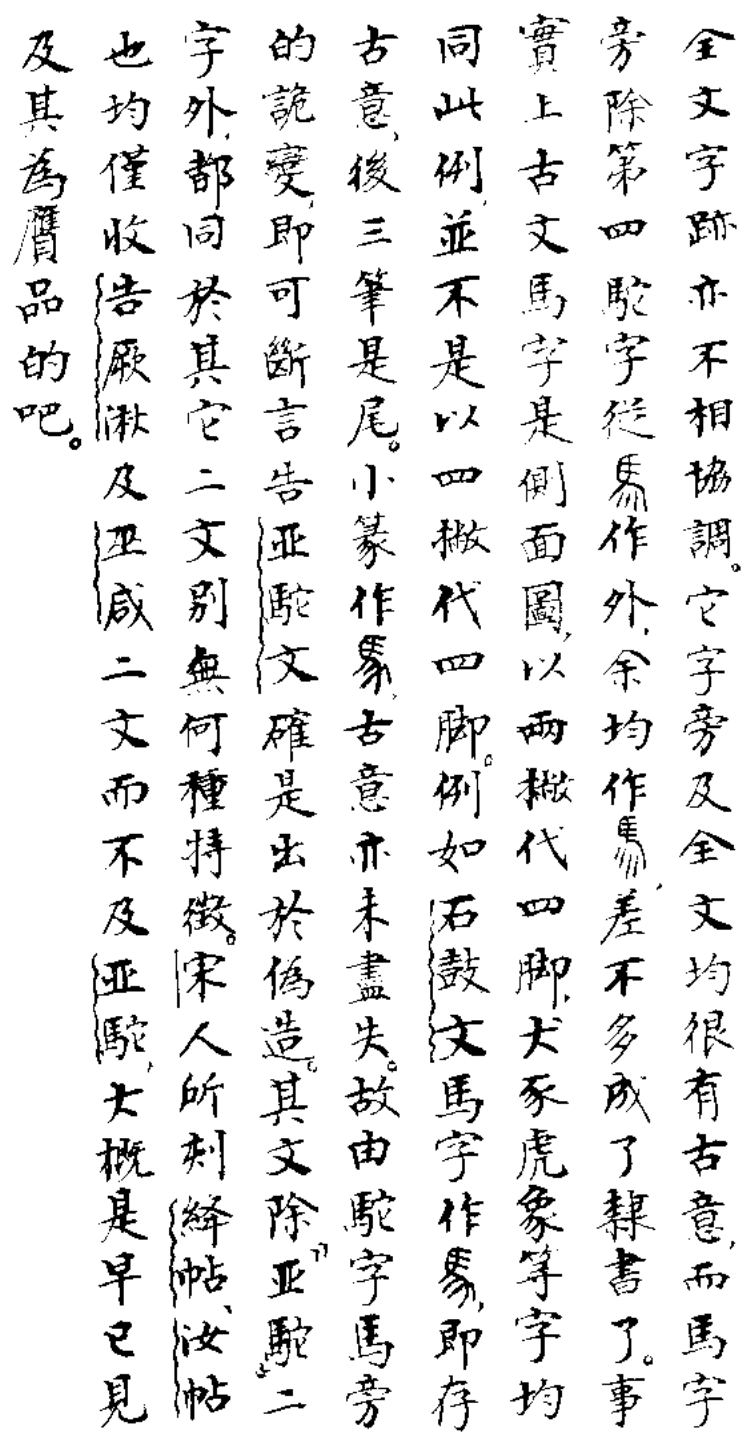 全文字跡亦不相協調。它字旁及全文均很有古意，而馬字
旁除第四駝字從馬作外，余均作馬，差不多成了隸書了。事
實上古文馬字是側面圖，以兩撇代四脚，犬豕虎象等字均
同此例，並不是以四撇代四脚。例如石鼓文馬字作馬，即存
古意，後三筆是尾。小篆作馬，古意亦未盡失。故由駝字馬旁
的詭變，即可斷言告亚駝文確是出於偽造。其文除“亚駝”二
字外，都同於其它二文别無何種特徵。宋人所刻絳帖、汝帖
也均僅收告厥湫及巫咸二文而不及亚駝，大概是早已見
及其為贋品的吧。